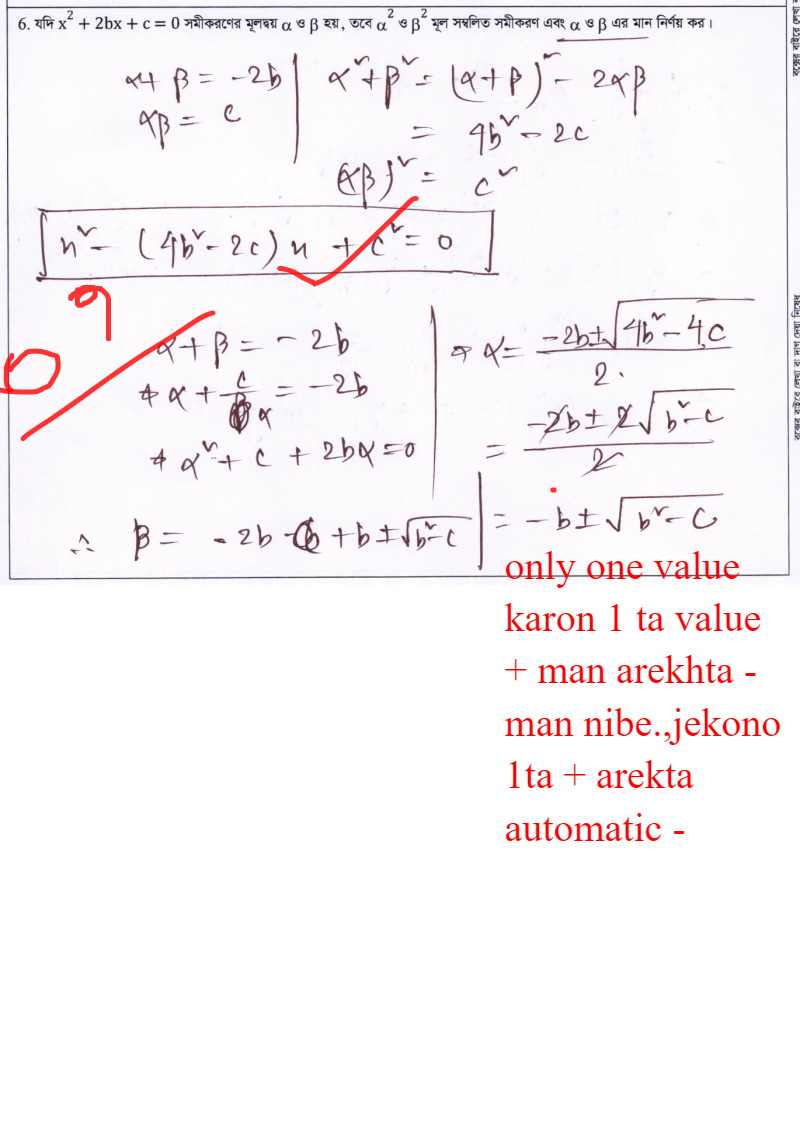 6. যদি x² + 2bx + c = 0 সমীকরণের মূলদ্বয় α ও β হয়, তবে α² ও β² মূল সম্বলিত সমীকরণ এবং α ও β এর মান নির্ণয় কর।
α + β = -2b
αβ = c
α² + β² = (α + β)² - 2αβ
= 4b² - 2c
(αβ)² = c²
x² - (4b² - 2c) x + c² = 0
α + β = -2b
⇒ α + c/α = -2b
⇒ α² + c + 2bα = 0
⇒ α = (-2b ± √(4b² - 4c)) / 2
= (-2b ± 2√(b² - c)) / 2
= -b ± √(b² - c)
∴ β = -2b + b ± √(b² - c)
only one value
karon 1 ta value
+ man arekhta -
man nibe.,jekono
1ta + arekta
automatic -